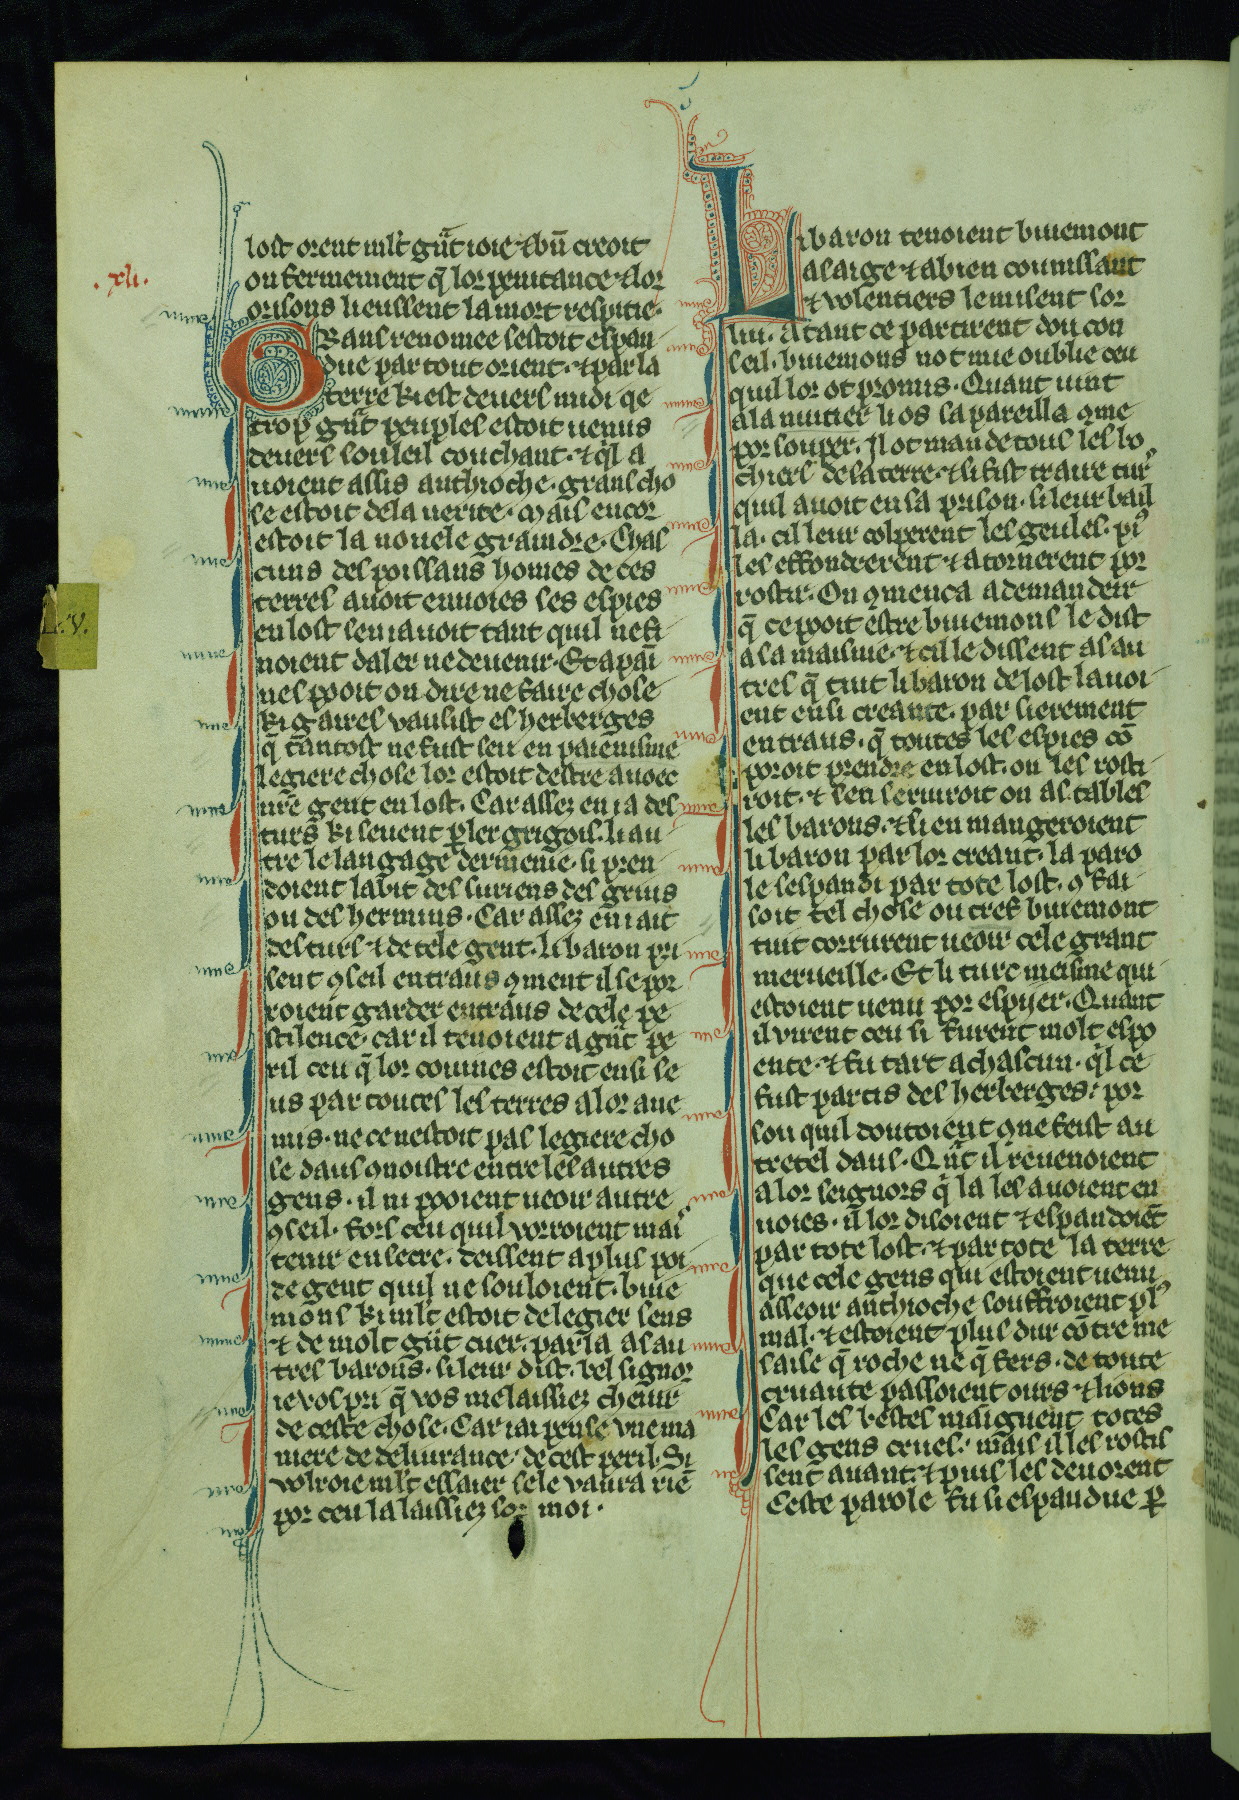 lost orent ml't gñt ioie ⁊ bñ creoit
on fermement q̃ lor penitance ⁊ lor
orisons li eussent la mort respitie.
.xli.
Grans renomee sestoit espan
due par tout orient. ⁊ par la
terre ki est devers midi qe
trop gñt peuples estoit uenus
devers souleil couchant. ⁊ q̃l a
uoient assis anthioche. grans cho
se estoit de la uerite. mais encor
estoit la nouele graindre. Chas
cuns des poissans homes de ces
terres avoit enuoies ses espies
en lost sen i auoit tant quil ne fi
noient daler ne de uenir. Et a pai
nes pooit on dire ne faire chose
ki gaires vausist es herberges
q̃ tantost ne fust seu en paienisme
legiere chose lor estoit destre auoec
nr̃e gent en lost. Car assez en i a des
turs ki seuent pler grigois. li au
tre le langage dermenie. si pren
doient labit des suriens des grius
ou des hermins. Car assez en i ait
des turs ⁊ de tele gent. li baron pri
sent ꝯseil entraus ꝯment il se por
roient garder entraus de cele pe
stilence. car il tenoient a gñt pe
ril ceu q̃ lor couines estoit ensi se
us par toutes les terres a lor ane
mis. ne ce nestoit pas legiere cho
se daus ꝯnoistre entre les autres
gens. il ni pooient ueoir autre
ꝯseil. fors ceu quil vorroient mai
tenir en secre. deissent a plus poi
de gent quil ne souloient. buie
mons ki ml't estoit de legier sens
⁊ de molt gñt cuer. parla as au
tres barons. si leur dist. bel signor
ie vos pri q̃ vos me laissiez chevir
de ceste chose. Car iai pense vne ma
niere de deliurance. de cest peril. Si
volroie ml't essaier se le vaura riẽ
por ceu la laissiez sor moi.
L.v.
Li baron tenoient buiemont
a saige ⁊ a bien connissant
⁊ volentiers le misent sor
lui. A tant ce partirent dou con
seil. buiemons not mie oublie ceu
quil lor ot promis. Quant uint
a la nuitier li os sapareilla ꝯme
por souper. Il ot mande tous les bo
chiers de sa terre. ⁊ si fist traire tur
quil auoit en sa prison. si leur bail
la. cil leur colperent les geules. pĩ
les effonderent ⁊ atornerent por
rostir. On ꝯmenca a demandeir
q̃ ce pooit estre buiemons le dist
a sa maisnie. ⁊ cil le dissent as au
tres q̃ tuit li baron de lost lauoi
ent ensi creante. par sierement
entraus. q̃ toutes les espies cõ
poroit prendre en lost. on les rosti
roit. ⁊ sen seruiroit on as tables
les barons. ⁊ si en mangeroient
li baron par lor creant. la paro
le sespandi par tote lost. ꝯ fai
soit tel chose ou tref buiemont
tuit corrurent ueoir cele grant
merueille. Et li turc meisme qui
estoient uenu por espiier. Quant
il virent ceu si furent molt espo
ente. ⁊ fu tart a chascun. q̃l ce
fust partis des herberges. por
sou quil doutoient ꝯ ne feist au
tretel daus. Q̃nt il reuenoient
a lor seignors q̃ la les auoient en
uoies. il lor disoient ⁊ espandoiẽt
par tote lost. ⁊ par tote la terre
que cele gens qui estoient uenu
asseoir anthioche souffroient pl'
mal. ⁊ estoient plus dur cõtre me
saise q̃ roche ne q̃ fers. de toute
cruaute passoient ours ⁊ lions
Car les bestes maiguent totes
les gens crues. mais il les rostis
sent auant. ⁊ puis les deuorent
Ceste parole fu si espandue p